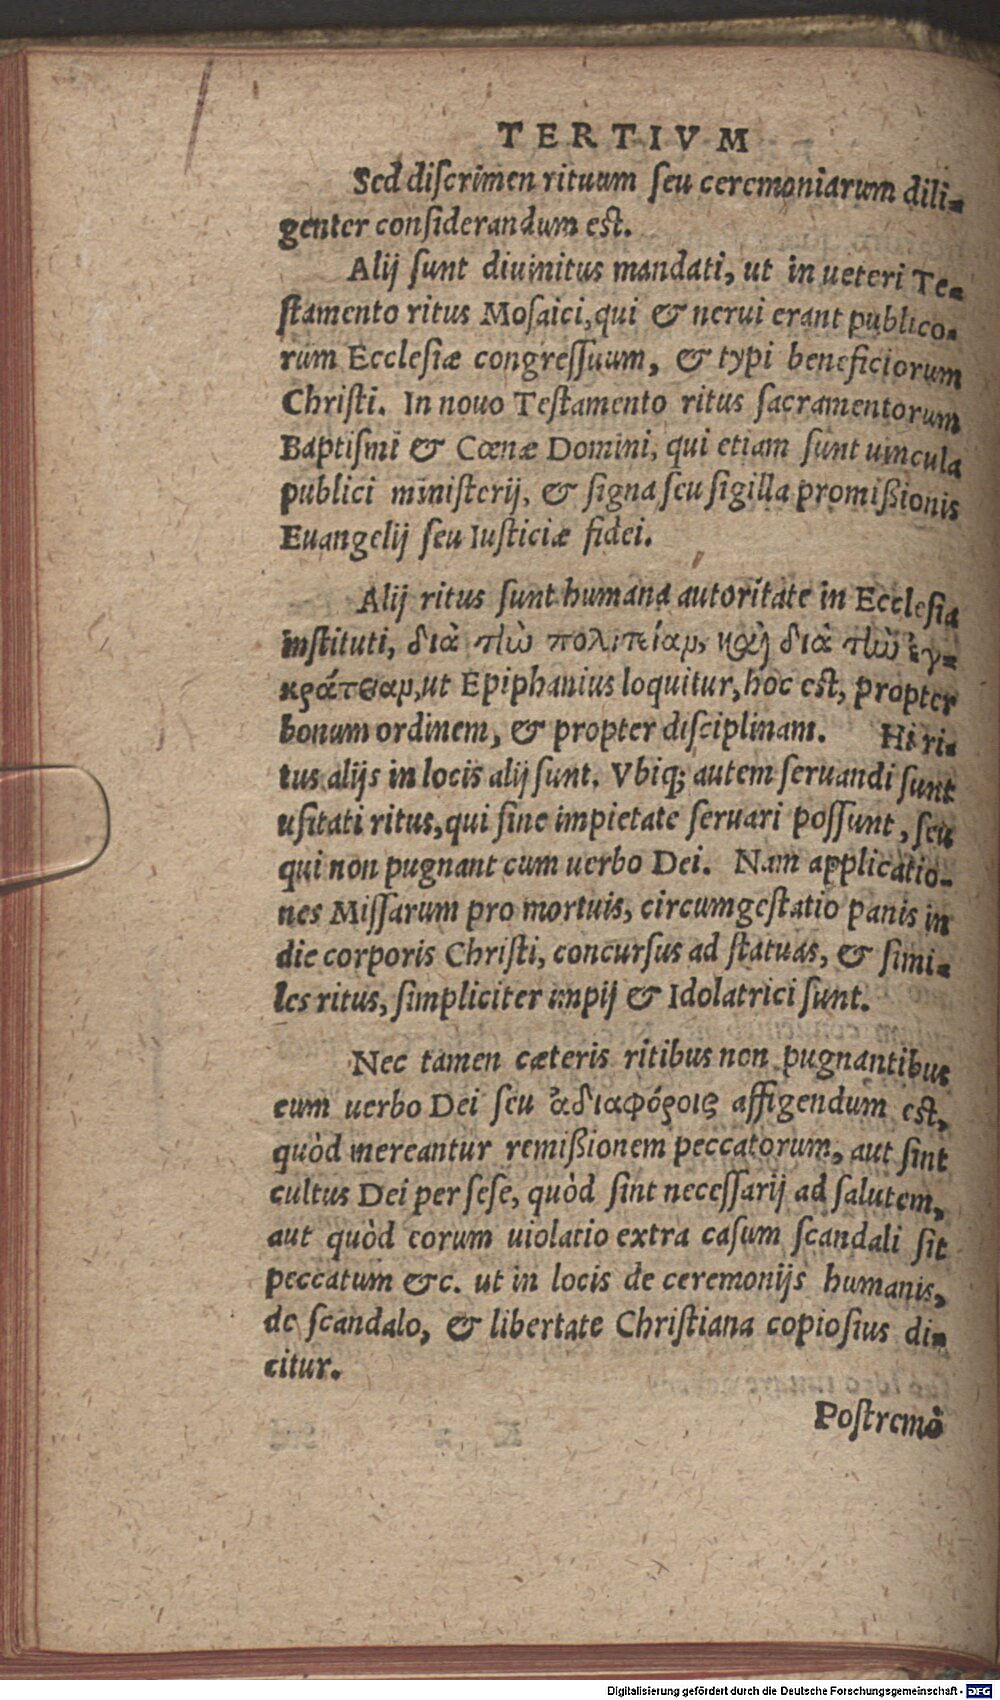 TERTIVM
Sed discrimen rituum seu ceremoniarum dili-
genter considerandum est.
Alij sunt diuinitus mandati, ut in ueteri Te-
stamento ritus Mosaici, qui & nerui erant publico-
rum Ecclesiæ congressuum, & typi beneficiorum
Christi. In nouo Testamento ritus sacramentorum
Baptismi & Cœnæ Domini, qui etiam sunt uincula
publici ministerij, & signa seu sigilla promißionis
Euangelij seu Iusticiæ fidei.
Alij ritus sunt humana autoritate in Ecclesia
instituti, διὰ τὴν πολιτείαν, καὶ διὰ τὴν ἐγ-
κράτειαν, ut Epiphanius loquitur, hoc est, propter
bonum ordinem, & propter disciplinam. Hi ri-
tus alijs in locis alij sunt. Vbiq; autem seruandi sunt
usitati ritus, qui sine impietate seruari possunt, seu
qui non pugnant cum uerbo Dei. Nam applicatio-
nes Missarum pro mortuis, circumgestatio panis in
die corporis Christi, concursus ad statuas, & simi-
les ritus, simpliciter impij & Idolatrici sunt.
Nec tamen cæteris ritibus non pugnantibus
cum uerbo Dei seu ἀδιαφόροις affigendum est,
quòd mereantur remißionem peccatorum, aut sint
cultus Dei per sese, quòd sint necessarij ad salutem,
aut quòd eorum uiolatio extra casum scandali sit
peccatum &c. ut in locis de ceremonijs humanis,
de scandalo, & libertate Christiana copiosius di-
citur.
Postremò
Digitalisierung gefördert durch die Deutsche Forschungsgemeinschaft - DFG